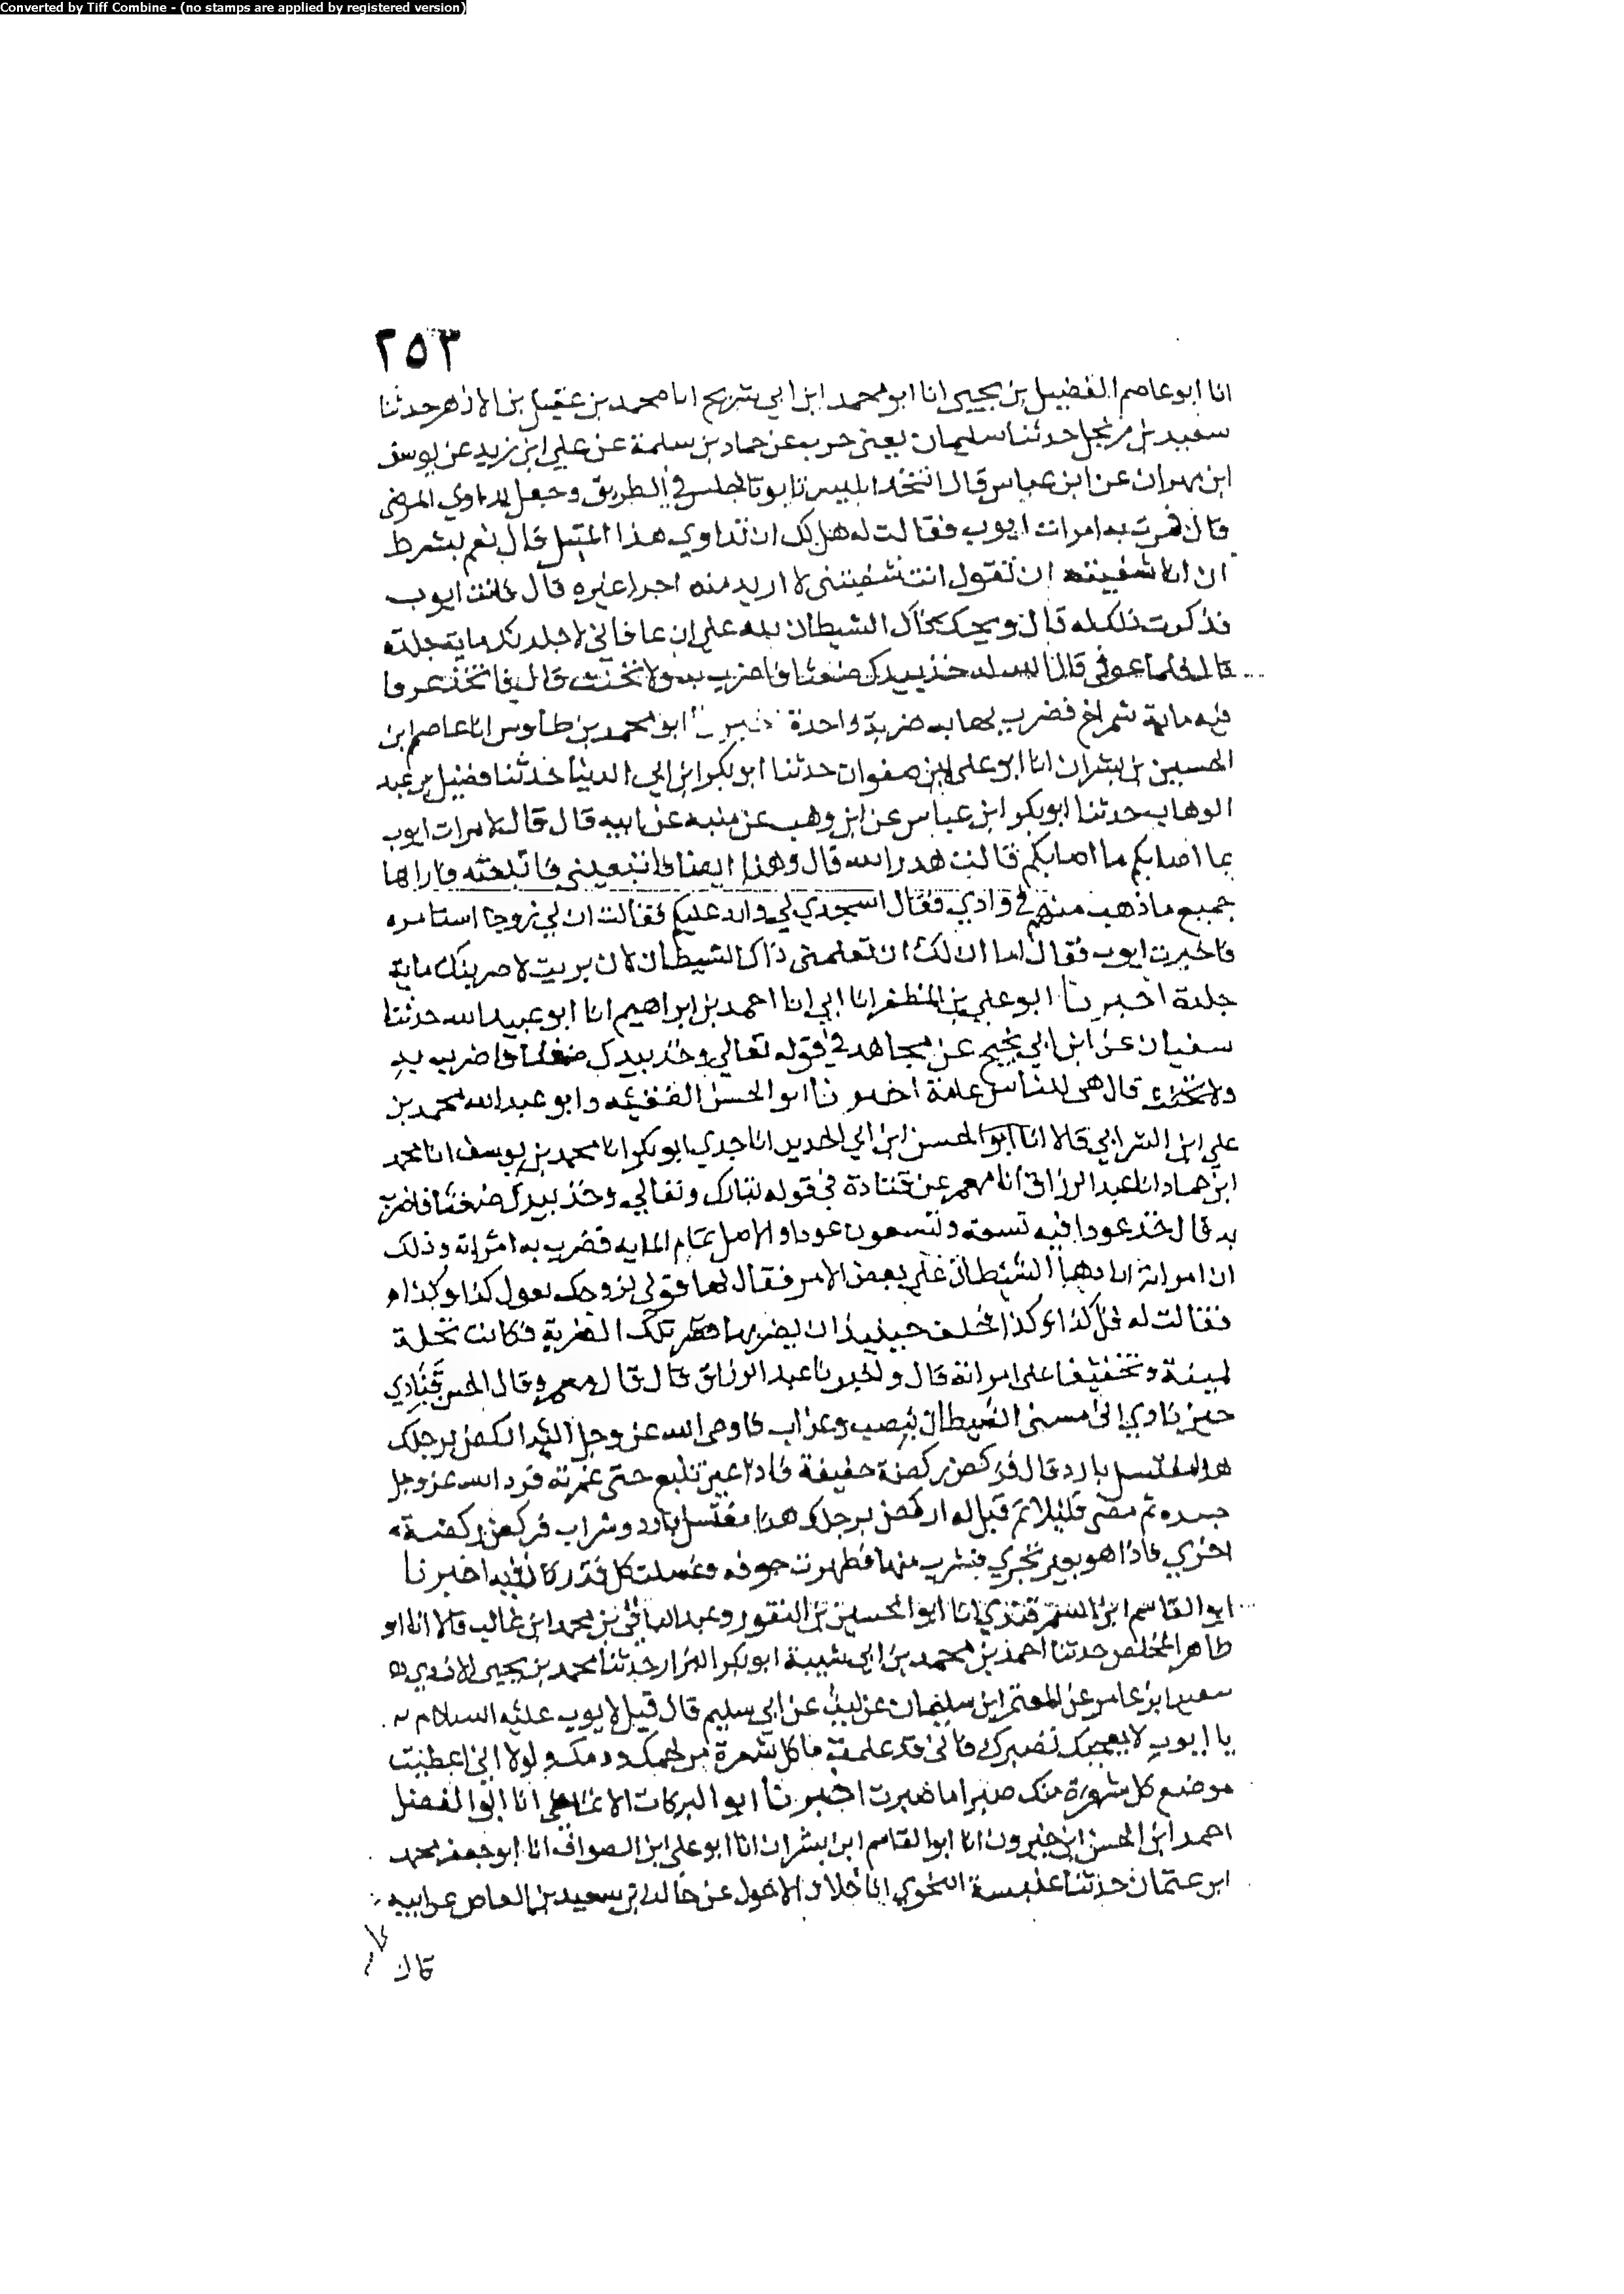 Converted by Tiff Combine - (no stamps are applied by registered version)
٢٥٣
انا ابو عاصم الفضيل بن يحيى انا ابو محمد ابن ابي شريح انا محمد بن عقيل بن الازهر حدثنا
سعيد بن حدثنا سليمان يعني حرب عن حماد بن سلمة عن علي ابن زيد عن يوسف
ابن مهران عن ابن عباس قال اتخذ ابليس تابوتا لجلس في الطريق وجعل يداوي المرضى
قال فمرت به امرات ايوب فقالت له هل لك ان تداوي هذا المبتلى قال نعم بشرط
ان انا شفيته ان تقول انت شفيتني لا اريد منه اجرا غيره قال فاتت ايوب
فذكرت ذلك له قال ويحك ذاك الشيطان لله علي ان عافاني لاجلدنك ماية جلدة
قال فلما عوفي قال الله له خذ بيدك ضغثا فاضرب به ولا تحنث قال فاتخذ عرقا
فيه ماية شمراخ فضرب بها به ضربة واحدة ابو محمد بن طاوس انا عاصم ابن
الحسين بن بشران انا ابو علي ابن صفوان حدثنا ابو بكر ابن ابي الدنيا حدثنا فضيل بن عبد
الوهاب حدثنا ابو بكر ابن عباس عن ابن وهب عن منبه عن ابيه قال قال لامرات ايوب
بما اصابكم ما اصابكم قالت هدر الله قال وهذا ايضا فاتبعيني فاتبعته فاراها
جميع ما ذهب منهم في وادي فقال اسجدي لي وارد عليكم فقالت ان لي زوجا استامره
فاخبرت ايوب فقال اما ان لك ان تعلمني ذاك الشيطان لان بريت لاضربنك ماية
جلدة اخبرنا ابو علي بن المظفر انا ابي انا احمد بن ابراهيم انا ابو عبيد الله حدثنا
سفيان عن ابن ابي نجيح عن مجاهد في قوله تعالى وخذ بيدك ضغثا فاضرب به
ولا تحنث قال هي للناس عامة اخبرنا ابو الحسن الفقيه وابو عبد الله محمد بن
علي ابن الشرابي قالا انا ابو الحسن ابن ابي الحديد انا جدي ابو بكر انا محمد بن يوسف انا محمد
ابن حماد انا عبد الرزاق انا معمر عن قتادة في قوله تبارك وتعالى وخذ بيدك ضغثا فاضرب
به قال خذ عودا فيه تسعة وتسعون عودا والاصل تمام المايه فضرب به امراته وذلك
ان امراته اتاها الشيطان على بعض الامر فقال لها قولي لزوجك يقول كذا وكذا
فقالت له قل كذا وكذا فحلف حينيذ ان يضربها تلك الضربة فكانت تحلة
ليمينه وتخفيفا على امراته قال واخبرنا عبد الرزاق قال قال معمر وقال الحسن فنادي
حين نادي اني مسني الشيطان بنصب وعذاب فاوحى الله عز وجل اليه اركض برجلك
هذا مغتسل بارد قال فركض ركضة خفيفة فاذا عين تنبع حتى غمرته فرد الله عز وجل
جسده ثم مضى قليلا ثم قيل له اركض برجلك هذا مغتسل بارد وشراب فركض ركضة
اخري فاذا هو بعين تجري فشرب منها فطهرت جوفه وغسلت كل قذر كان فيه اخبرنا
ابو القاسم ابن السمرقندي انا ابو الحسين بن النقور وعبد الباقي بن محمد ابن غالب قالا انا ابو
طاهر المخلص حدثنا احمد بن محمد بن ابي شيبة ابو بكر البزار حدثنا محمد بن يحيى الازدي
سعيد ابن عامر عن المعتمر ابن سليمان عن ليث عن ابي سليم قال قيل لايوب عليه السلام
يا ايوب لا يعجبك تصبرك فاني قد علمت ما كل شعرة من لحمك ودمك ولولا اني اعطيت
موضع كل شعرة منك صبرا ما صبرت اخبرنا ابو البركات الانماطي انا ابو الفضل
احمد ابن الحسن ابن خيرون انا ابو القاسم ابن بشران انا ابو علي ابن الصواف انا ابو جعفر محمد
ابن عثمان حدثنا عنبسة النحوي انا خلاد الاحول عن خالد بن سعيد بن العاص عن ابيه
قال